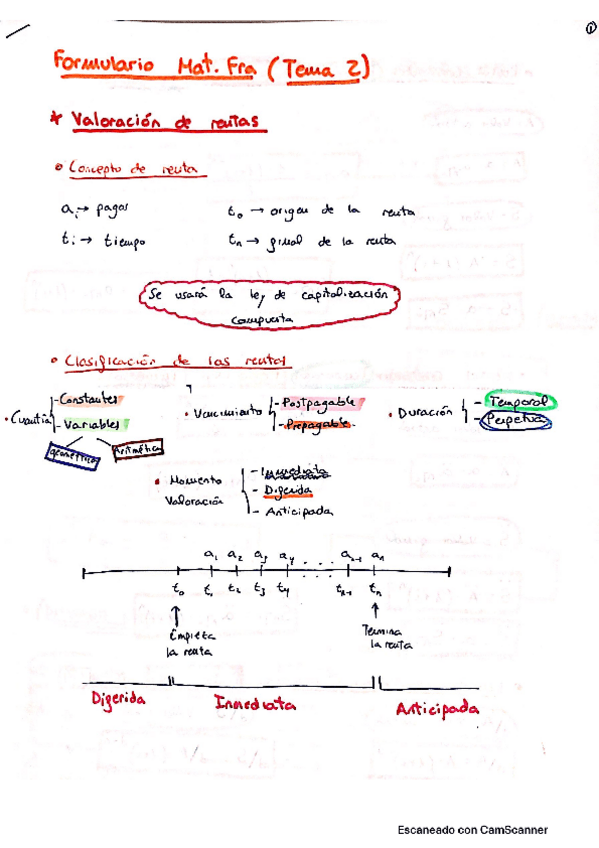 ①
Formulario Mat. Fra (Tema 2)
* Valoración de rentas
• Concepto de renta
aᵢ → pagos
t₀ → origen de la renta
tᵢ → tiempo
tₙ → final de la renta
Se usará la ley de capitalización
compuesta
• Clasificación de las rentas
• Cuantía
- Constantes
- Variables
geométrica
Aritmética
• Vencimiento
- Postpagable
- Prepagable
• Duración
- Temporal
- Perpetua
• Momento
Valoración
- Inmediata
- Diferida
- Anticipada
a₁ a₂ a₃ a₄ . . . . aₙ₋₁ aₙ
t₀ t₁ t₂ t₃ t₄ tₙ₋₁ tₙ
↑ ↑
Empieza
la renta
Termina
la renta
Diferida Inmediata Anticipada
Escaneado con CamScanner